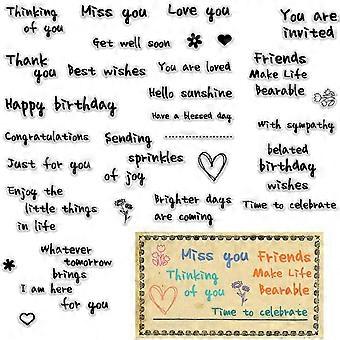 Thinking
of you
Miss you
Love you
You are
invited
Get well soon
Thank
you
Best wishes
You are loved
Friends
Make Life
Bearable
Hello sunshine
Happy birthday
Have a blessed day
with sympathy
Congratulations
Sending
sprinkles
of joy
belated
birthday
wishes
Just for you
Enjoy the
little things
in life
Brighter days
are coming
Time to celebrate
whatever
tomorrow
brings
I am here
for you
Miss you
Friends
Make Life
Bearable
Thinking
of you
Time to celebrate